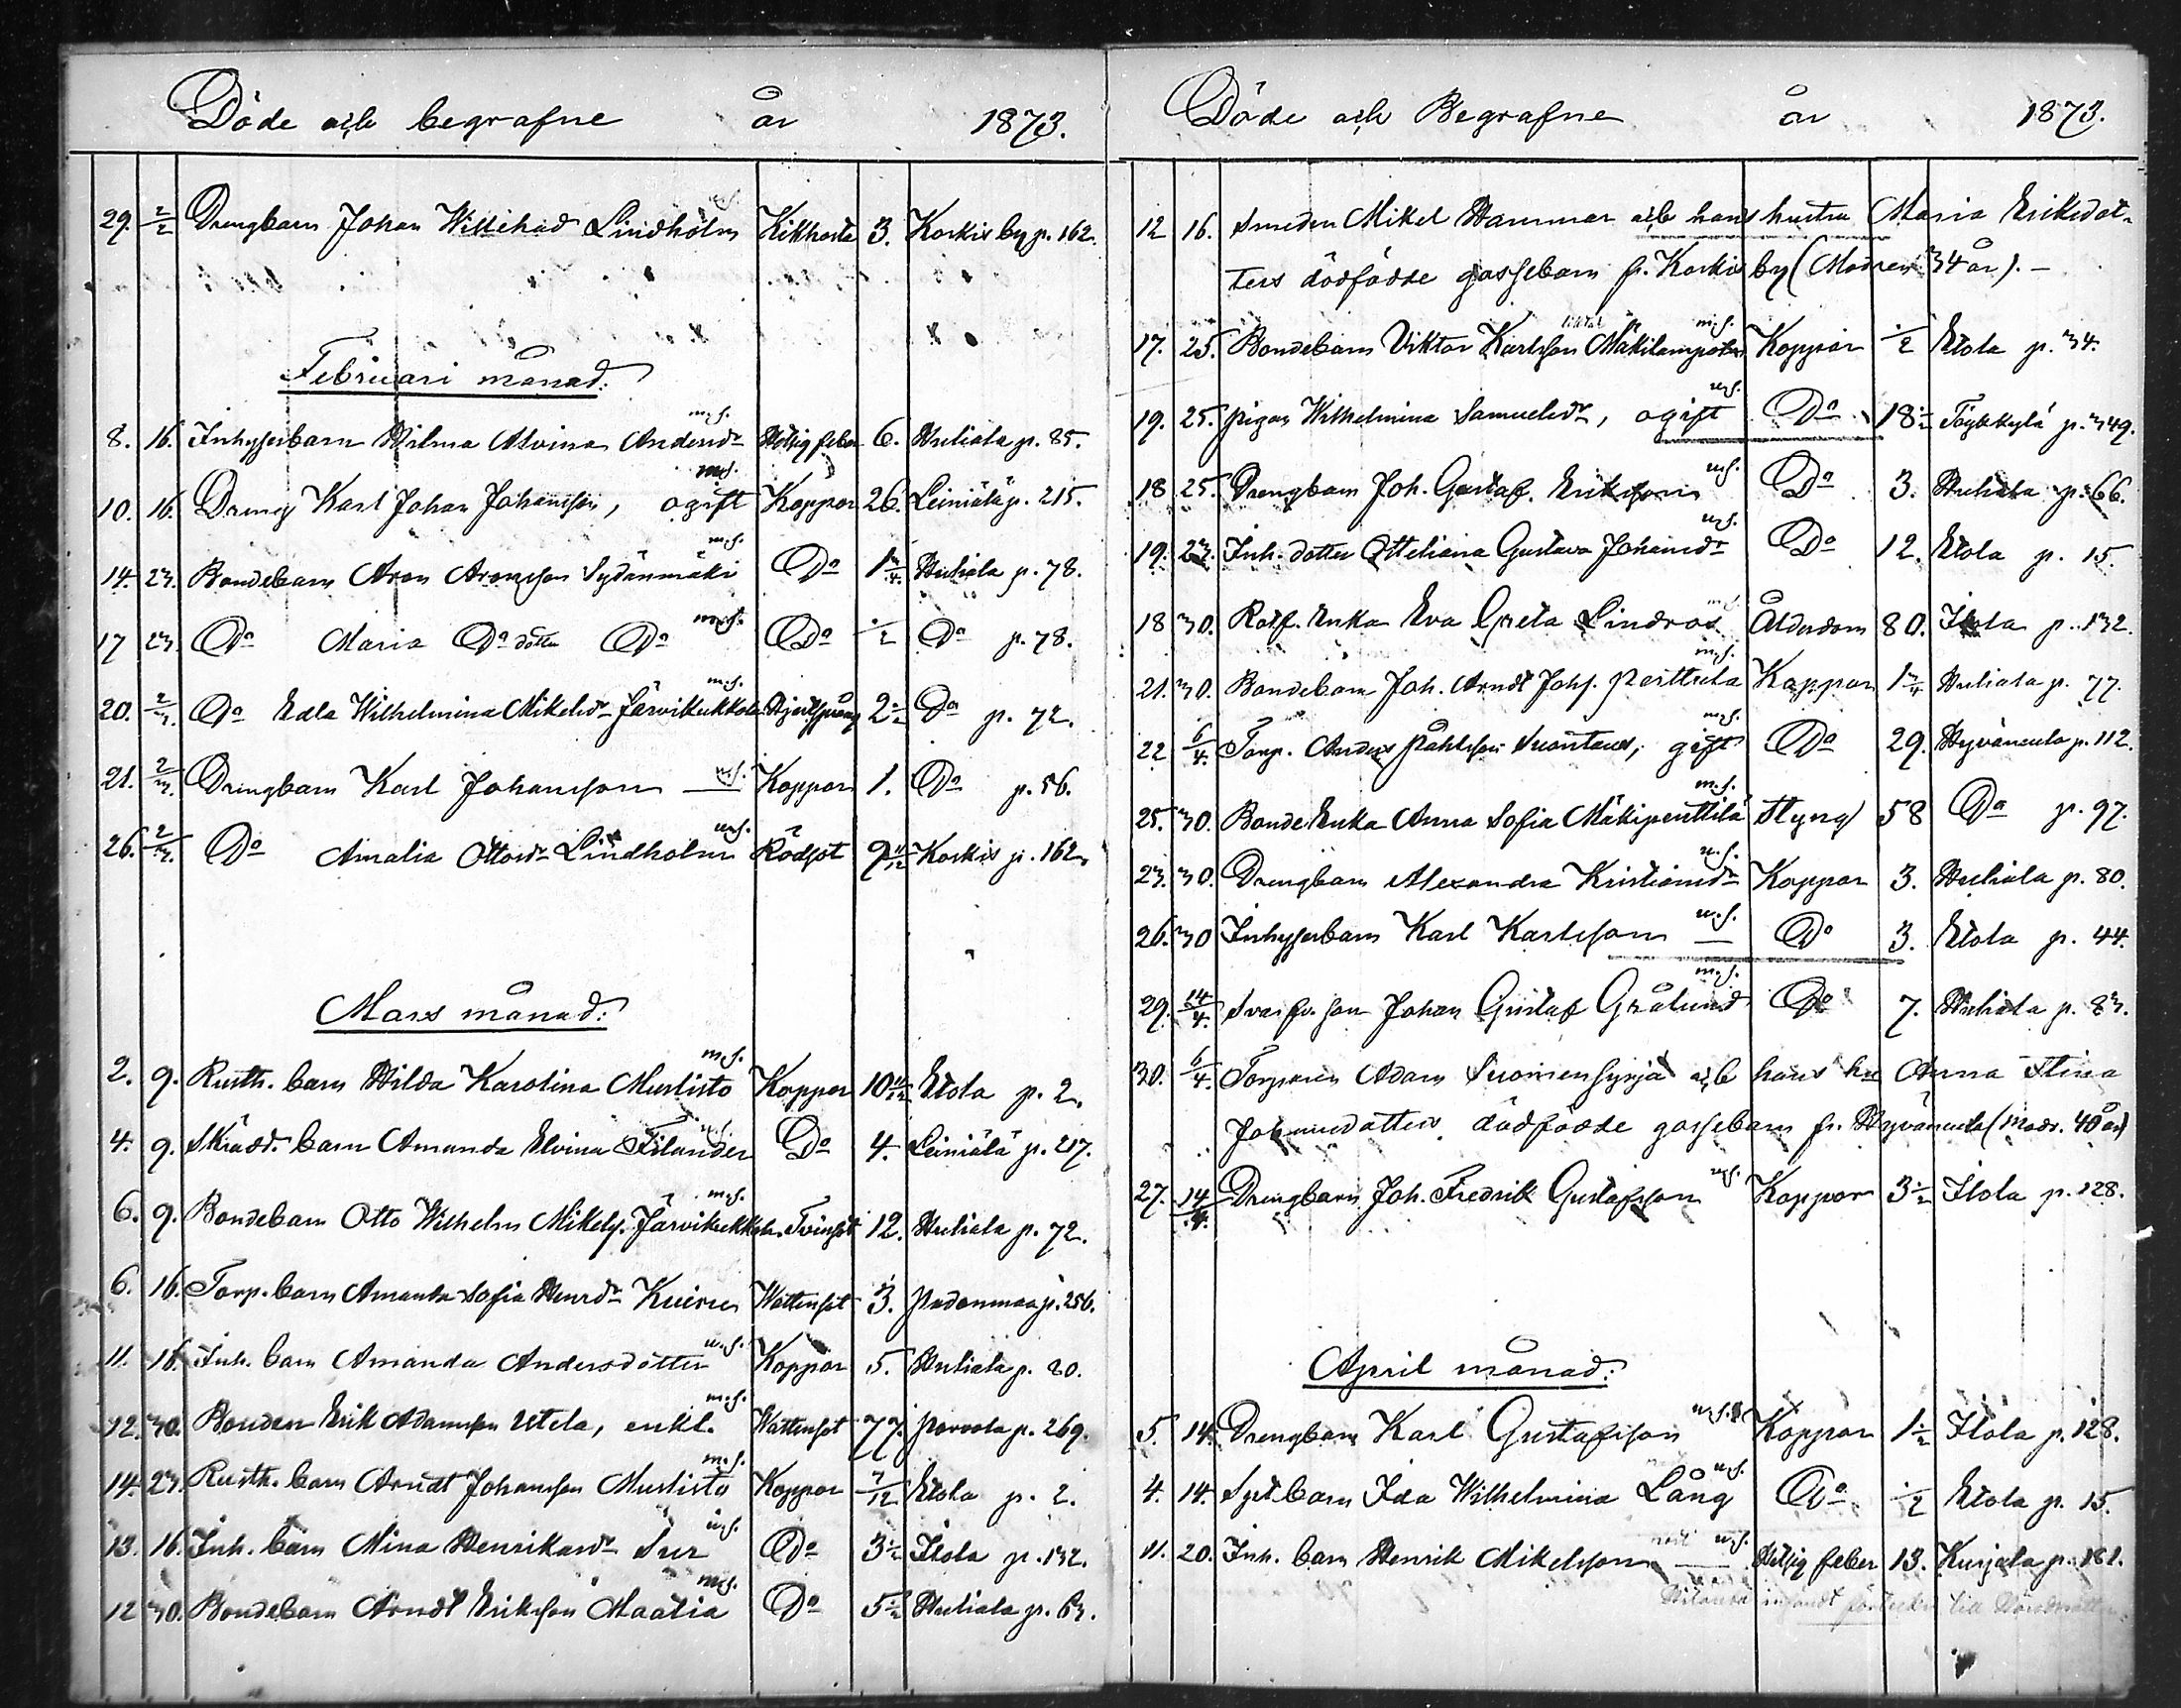 Döde och begrafne år 1873.
29. 2/2 Drengbarn Johan Willehad Lindholm Kikhosta 3. Korkis by p. 162.
Februari månad:
8. 16. Inhysesbarn Wilma Alvina Andersdr m.s. Hetsig feber 6. Huliala p. 85.
10. 16. Dreng Karl Johan Johansson, ogift m.s. Koppor 26. Leiniälä p. 215.
14. 23. Bondebarn Aron Aronsson Sydänmäki m.s. Do 1 3/4 Huliala p. 78.
17 23. Do Maria Do dotter Do m.s. Do 1/2 Do p. 78.
20. 2/3. Do Edla Wilhelmina Mikelsdr Järvikukkola m.s. 2 1/2 Do p. 72.
21. 2/3. Drengbarn Karl Johansson — m.s. Koppor 1. Do p. 56.
26. 2/3. Do Amalia Ottosdr Lindholm m.s. Rödsot 9 11/12 Korkis p. 162.
Mars månad:
2. 9. Rusth. barn Hilda Karolina Mustisto m.s. Koppor 10 11/12 Etola p. 2.
4. 9. Skrädd. barn Amanda Elvina Filander Do 4. Leiniälä p. 217.
6. 9. Bondebarn Otto Wilhelm Mikelss. Järvikukkola m.s. Tvinsot 12. Huliala p. 72.
6. 16. Torp. barn Amanda Sofia Henrdr Kuiru Wattensot 3. Padanmaa p. 256.
11. 16. Inh. barn Amanda Andersdotter m.s. Koppor 5. Huliala p. 80.
12. 30. Bonden Erik Adamsson Utela, enkl. m.s. Wattensot 77. Porvola p. 269.
14. 23. Rusth. barn Arndt Johansson Mustisto m.s. Koppor 7/12 Etola p. 2.
13. 16. Inh. barn Mina Henriksdr Sur m.s. Do 3 1/2 Ilola p. 132.
12 30. Bondebarn Arndt Eriksson Maatia m.s. Do 5 1/2 Huliala p. 63.
Döde och Begrafne år 1873.
12 16. Smeden Mikel Hammar och hans hustru Maria Eriksdot-
ters dödfödde gossebarn fr. Korkis by (Modren 34 år). —
17. 25. Bondebarn Viktor Karlsson Mäkilampola m.s. Koppor 1/2 Etola p. 34.
19. 25. Pigan Wilhelmina Samuelsdr, ogift m.s. Do 18 1/2 Töykkylä p. 349.
18 25. Drengbarn Joh. Gustaf Eriksson m.s. Do 3. Huliala p. 66.
19. 23. Inh. dotter Otteliana Gustava Johansdr m.s. Do 12. Etola p. 15.
18 30. Rotf. Enka Eva Greta Lindroos m.s. Ålderdom 80. Ilola p. 132.
21. 30. Bondebarn Joh. Arndt Johs. Perttula m.s. Koppor 1 3/4 Huliala p. 77.
22 6/4. Torp. Anders Påhlsson Suontaus, gift m.s. Do 29. Hyväneula p. 112.
25. 30. Bonde Enka Anna Sofia Mäkipenttilä m.s. Styng 58 Do p. 97.
23. 30. Drengbarn Alexandra Kristiansdr m.s. Koppor 3. Huliala p. 80.
26. 30 Inhysesbarn Karl Karlsson — m.s. Do 3. Etola p. 44.
29. 14/4. Svarfv. son Johan Gustaf Grålund m.s. Do 7. Huliala p. 83.
30. 6/4. Torparen Adam Suomensyrjä och hans hu Anna Stina
Johansdotters dödfödde gossebarn fr. Hyväneula (Modr. 40 år)
27. 14/4. Drengbarn Joh. Fredrik Gustafsson m.s. Koppor 3 1/2 Ilola p. 128.
April månad:
5. 14. Drengbarn Karl Gustafsson m.s. Koppor 1 1/2 Ilola p. 128.
4. 14. Syt. barn Ida Wilhelmina Lång m.s. Do 1/2 Etola p. 15.
11. 20. Inh. barn Henrik Mikelsson m.s. Hetsig feber 13. Kurjala p. 181.
till Häradsrätten